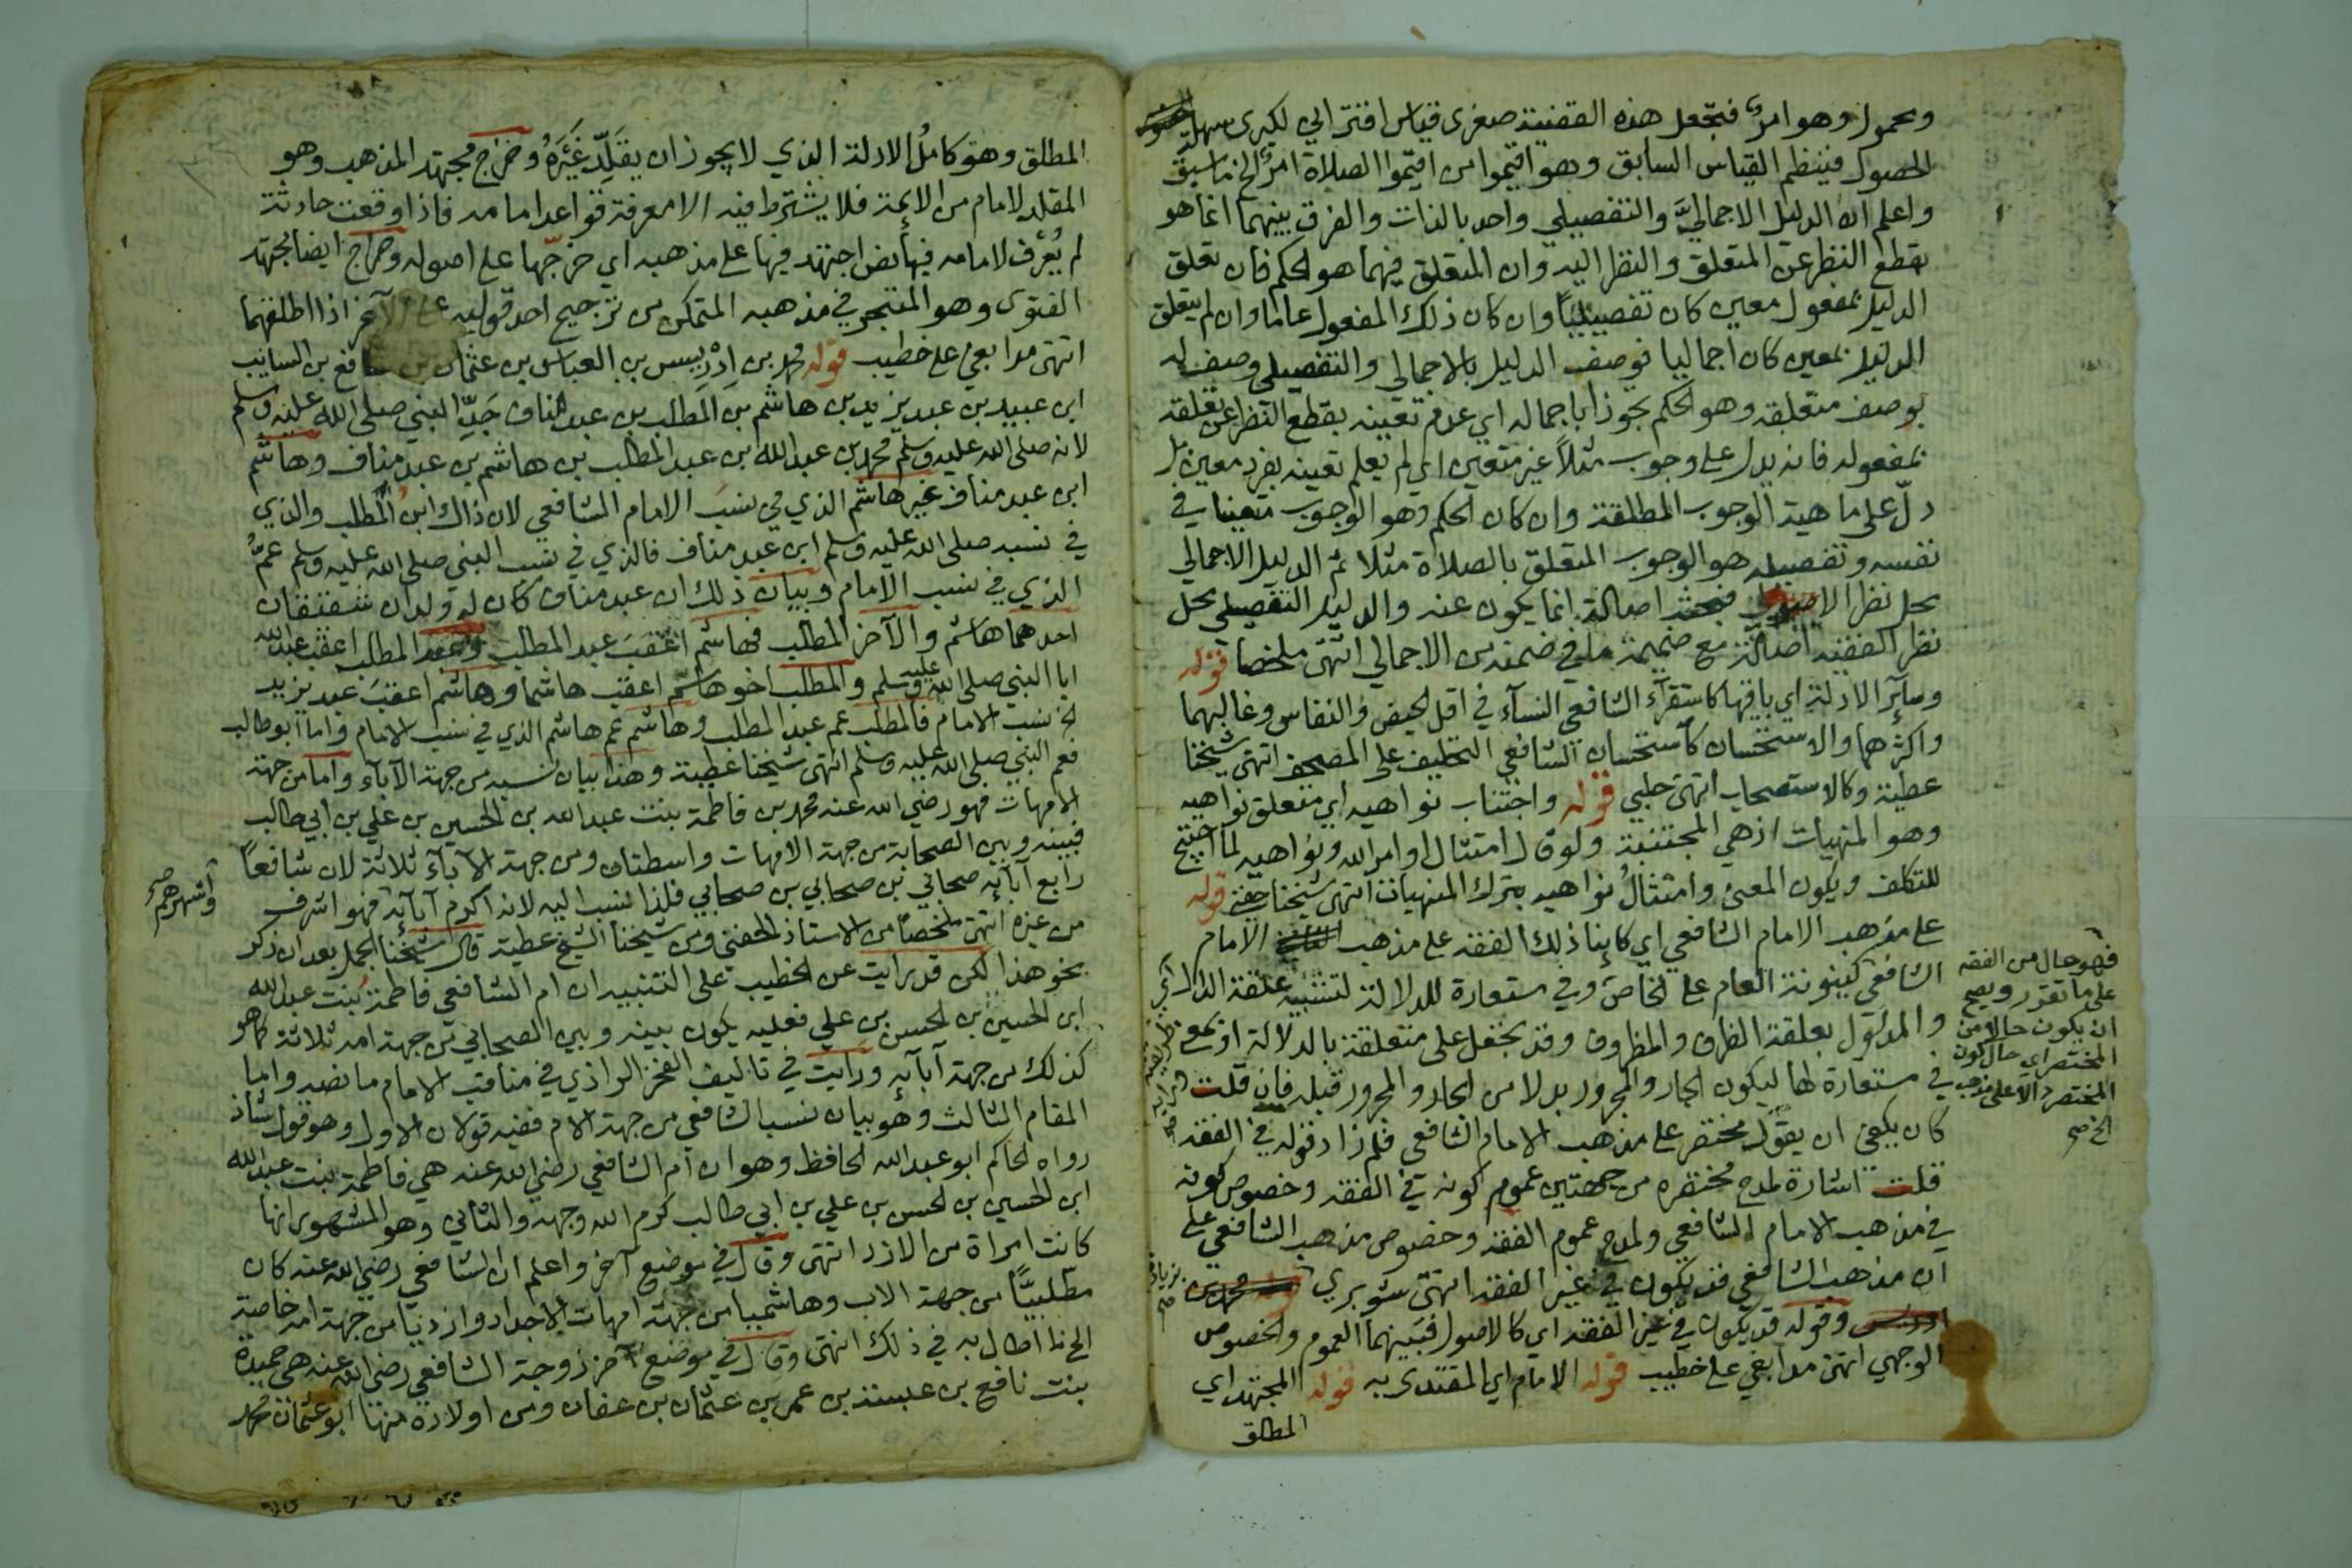 ومحمول وهو امرٌ فتجعل هذه القضية صغرى قياس اقتراني لكبرى سهلة
الحصول فينتظم القياس السابق وهو اقيموا من اقيموا الصلاة امرٌ الخ ما سبق
واعلم ان الدليل الاجماليَّ والتفصيلي واحد بالذات والفرق بينهما انما هو
بقطع النظر عن المتعلق والنظر اليه وان المتعلق فيهما هو الحكم فان تعلق
الدليل بمفعول معين كان تفصيليًّا وان كان ذلك المفعول عاما وان لم يتعلق
الدليل بمعين كان اجماليا فوصف الدليل بالاجمالي والتفصيلي وصف له
بوصف متعلقه وهو الحكم تجوزا باجماله اي عدم تعيينه بقطع النظر عن تعلقه
بمفعوله فانه يدل على وجوب مثلاً غير متعين اي لم يعلم تعيينه بفرد معين بل
دلّ على ماهية الوجوب المطلقة وان كان الحكم وهو الوجوب متعينا في
نفسه وتفصيله هو الوجوب المتعلق بالصلاة مثلا ثم الدليل الاجمالي
محل نظر الاصولي فبحثه اصالة انما يكون عنه والدليل التفصيلي محل
نظر الفقيه اصالة مع ضميمة ما في ضمنه من الاجمالي انتهى ملخصا قوله
وسائر الادلة اي باقيها كاستقرآء الشافعي النسآء في اقل الحيض والنفاس وغالبهما
واكثرهما والاستحسان كاستحسان الشافعي التحليف على المصحف انتهى شيخنا
عطية وكالاستصحاب انتهى حلبي قوله واجتناب نواهيه اي متعلق نواهيه
وهو المنهيات اذ هي المجتنبة ولو قال امتثال اوامر الله ونواهيه لما احتيج
للتكلف ويكون المعنى وامتثالُ نواهيه بترك المنهيات انتهى شيخنا حفنى قوله
على مذهب الامام الشافعي اي كاينا ذلك الفقه على مذهب الامام
الشافعي كينونة العام على الخاص وفي مستعارة للدلالة لتشبيه علقة الدال
والمدلول بعلقة الظرف والمظروف وقد تجعل على متعلقة بالدلالة او بمعنى
في مستعارة لها ليكون الجار والمجرور بدلا من الجار والمجرور قبله فان قلت
كان يكفى ان يقول مختصر على مذهب الامام الشافعي فلم زاد قوله في الفقه
قلت اشارة لمدح مختصره من جهتين عموم كونه في الفقه وخصوص كونه
في مذهب الامام الشافعي ولمدح عموم الفقه وخصوص مذهب الشافعي على
ان مذهب الشافعي قد يكون في غير الفقه انتهى شوبري
وقوله قد يكون في غير الفقه اي كالاصول فبينهما العموم والخصوص
الوجهي انتهى مدابغي على خطيب قوله الامام اي المقتدى به قوله المجتهد اي
المطلق
فهو حال من الفقه
على ما تقرر ويصح
ان يكون حالا من
المختصر اي حال كون
المختصر دالا على مذهب
الخ صح
بزيادة
صح
المطلق وهو كاملُ الادلة الذي لا يجوز ان يقلِّد غَيَرَهُ وخرج مجتهد المذهب وهو
المقلد لامام من الائمة فلا يشترط فيه الا معرفة قواعد امامه فاذا وقعت حادثة
لم يُعْرَف لامامه فيها نص اجتهد فيها على مذهبه اي خرّجها على اصوله وخرج ايضا مجتهد
الفتوى وهو المتبحر في مذهبه المتمكن من ترجيح احد قوليه على الآخر اذا اطلقهما
انتهى مدابغي على خطيب قوله محمد بن اِدْرِيس بن العباس بن عثمان بن شافع بن السايب
ابن عبيد بن عبد يزيد بن هاشم بن المطلب بن عبد مناف جَدِّ النبي صلى الله عليه وسلم
لانه صلى الله عليه وسلم محمد بن عبد الله بن عبد المطلب بن هاشم بن عبد مناف وهاشم
ابن عبد مناف غير هاشم الذي في نسَب الامام الشافعي لان ذاك ابنُ المطلب والذي
في نسبه صلى الله عليه وسلم ابن عبد مناف فالذي في نسب النبي صلى الله عليه وسلم عمُّ
الذي في نسب الامام وبيان ذلك ان عبد مناف كان له ولدان شقيقان
احدهما هاشم والآخر المطلب فهاشم اعقبَ عبد المطلب وعبد المطلب اعقب عبد الله
ابا النبي صلى الله عليه وسلم والمطلب اخو هاشم اعقب هاشما وهاشم اعقبَ عبد يزيد
الخ نسب الامام فالمطلب عم عبد المطلب وهاشم عم هاشم الذي في نسب الامام واما ابو طالب
فعم النبي صلى الله عليه وسلم انتهى شيخنا عطية وهذا بيان نسبه من جهة الآبآء واما من جهة
الامهات فهو رضي الله عنه محمد بن فاطمة بنت عبد الله بن الحسين بن علي بن ابي طالب
فبينه وبين الصحابة من جهة الامهات واسطتان ومن جهة الآبآء ثلاثة لان شافعاً
رابع آبآئه صحابي بن صحابي بن صحابي فلذا نسب اليه لانه اكرم آبآئه فهو اشرف
من غيره انتهى ملخصاً من الاستاذ الحفني ومن شيخنا الشيخ عطية قال شيخنا الجمل بعد ان ذكر
نحو هذا لكن قد رايت عن الخطيب على التنبيه ان ام الشافعي فاطمة بُنت عبد الله
ابن الحسين بن الحسن بن علي فعليه يكون بينه وبين الصحابي من جهة امه ثلاثة كما هو
كذلك من جهة آبآئه ورايت في تاليف الفخر الرازي في مناقب الامام ما نصه واما
المقام الثالث وهو بيان نسب الشافعي من جهة الام ففيه قولان الاول وهو قول شاذ
رواه الحاكم ابو عبد الله الحافظ وهو ان ام الشافعي رضي الله عنه هي فاطمة بنت عبد الله
ابن الحسين بن الحسن بن علي بن ابي طالب كرم الله وجهه والثاني وهو المشهور انها
كانت امراة من الازد انتهى وقال في موضع آخر واعلم ان الشافعي رضي الله عنه كان
مطلبيًّا من جهة الاب وهاشميا من جهة امهات الاجداد وازديا من جهة امه خاصة
الخ ما اطال به في ذلك انتهى وقال في موضع آخر زوجة الشافعي رضي الله عنه هي حميدة
بنت نافع بن عبسة بن عمر بن عثمان بن عفان ومن اولاده منها ابو عثمان محمد
واشهرهم صح